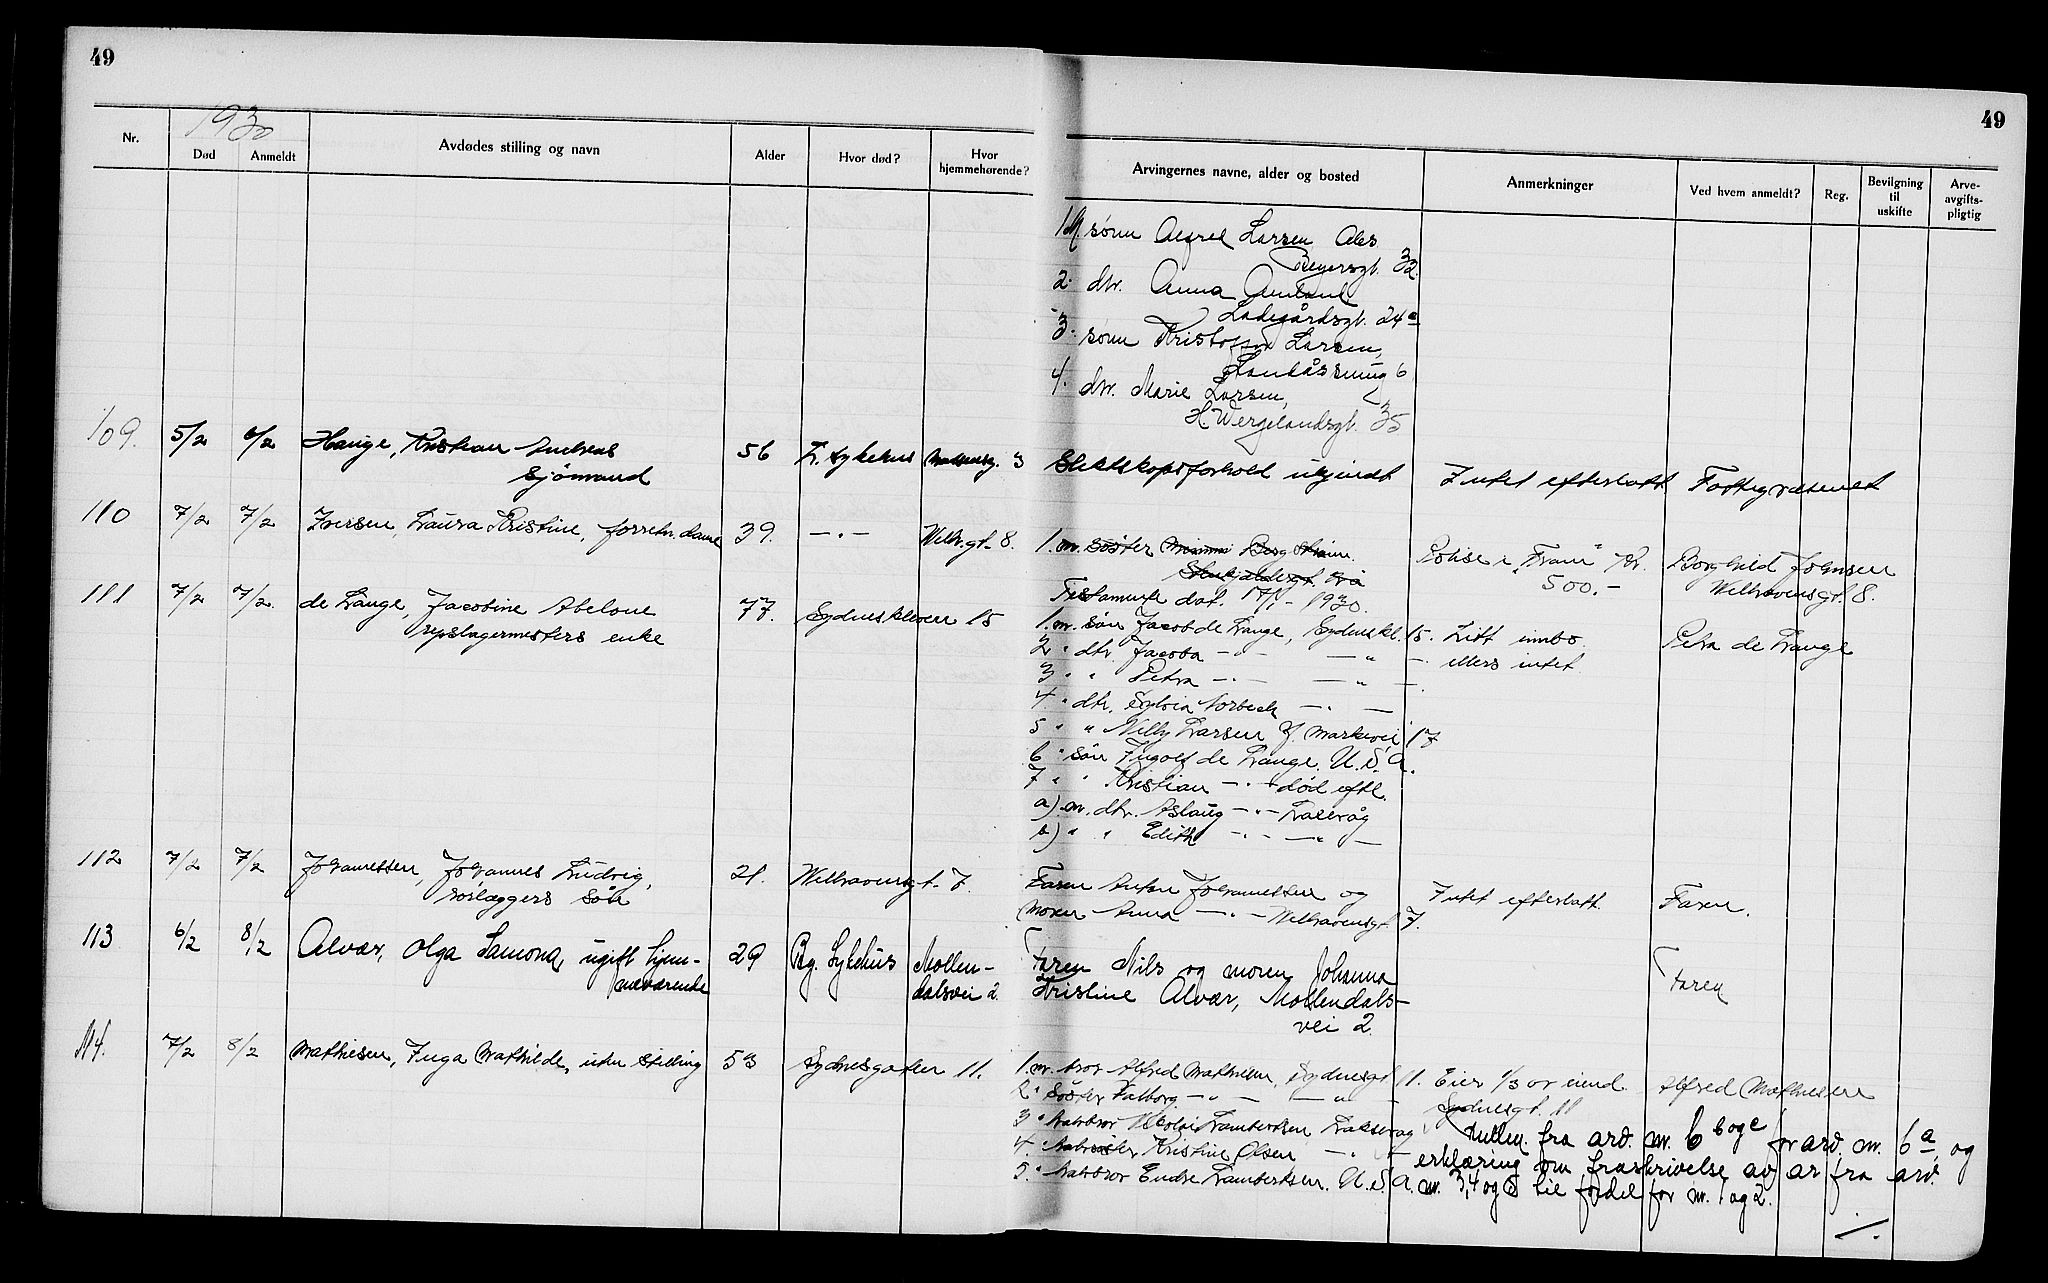 49
49
1930
Nr.
Død
Anmeldt
Avdødes stilling og navn
Alder
Hvor død?
Hvor hjemmehørende?
Arvingernes navne, alder og bosted
Anmerkninger
Ved hvem anmeldt?
Reg.
Bevilgning til uskifte
Arve-avgifts-pligtig
sønn Alfred Larsen, Abs
Beyersgt. 32.
2. dtr. Anna
Ladegårdsgt. 24a
3. sønn Kristoffer Larsen,
Landåssving 6
4. dtr. Marie Larsen,
H. Wergelandsgt. 35
109. 5/2 6/2 Hauge, Kristian Andreas 56 sykehus 3 Slektskapsforhold ukjendt Intet efterlatt Fattigvæsenet
sjömand
110 7/2 7/2 Iversen, Laura Kristine, forretn. dame 39. — " — Welh.gt. 8. 1. m. søster Berg Polise i "Fram" Kr. Borghild Johnsen
500.- Welhavensgt. 8.
111 7/2 7/2. de Lange, Jacobine Abelone 77. Sydneskleven 15 Testamente dat. 17/1 - 1930.
repslagermesters enke
1. m. sön Jacob de Lange, Sydneskl. 15. Litt innbo Petra de Lange
2 " dtr. Jacoba — " — — " — ellers intet
3 " " Petra — " — — " —
4 " dtr. Sylvia Norbeck — " —
5 " " Nelly Larsen Y. Markevei 17
6 " sön Ingolf de Lange. U.S.A.
7 " " Kristian — " — död eftl.
a) m. dtr. Aslaug — " — Laksevåg
b) " " Edith — " — — " —
112 7/2 7/2 Johannessen, Johannes Ludvig, 21. Welhavensgt. 7. Faren Anton Johannessen og Intet efterlatt. Faren.
rörlæggers sön moren Anna — " — Welhavensgt. 7.
113 6/2 8/2 Alvær, Olga Samona, ugift hjem- 29 Bg. Sykehus Møllen- Faren Nils og moren Johanna Faren
meværende dalsvei 2 Kristine Alvær, Møllendals-
vei 2.
114. 7/2 8/2 Mathiesen, Inga Mathilde, uten stilling 53 Sydnesgaten 11. 1. m. bror Alfred Mathiesen, Sydnesgt. 11. Eier 1/3 av eiend. Alfred Mathiesen
2 " Søster Valborg — " — — " — Sydnesgt. 11
3 " halvbror Nikolai Lambertsen Laksevåg fra arv. nr. 6 b og c for arv. nr. 6 a, og
4. " halvsöster Kristine Olsen — " — erklæring om fraskrivelse av arv fra arv.
5. " halvbror Endre Lambertsen. U.S.A. nr. 3, 4 og 5 til fordel for nr. 1 og 2.